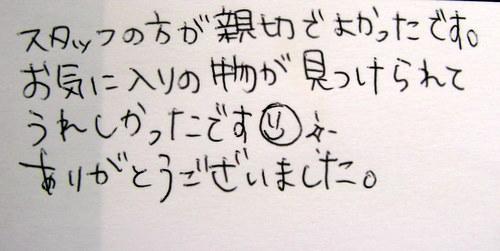 スタッフの方が親切でよかったです。
お気に入りの物が見つけられて
うれしかったです
ありがとうございました。